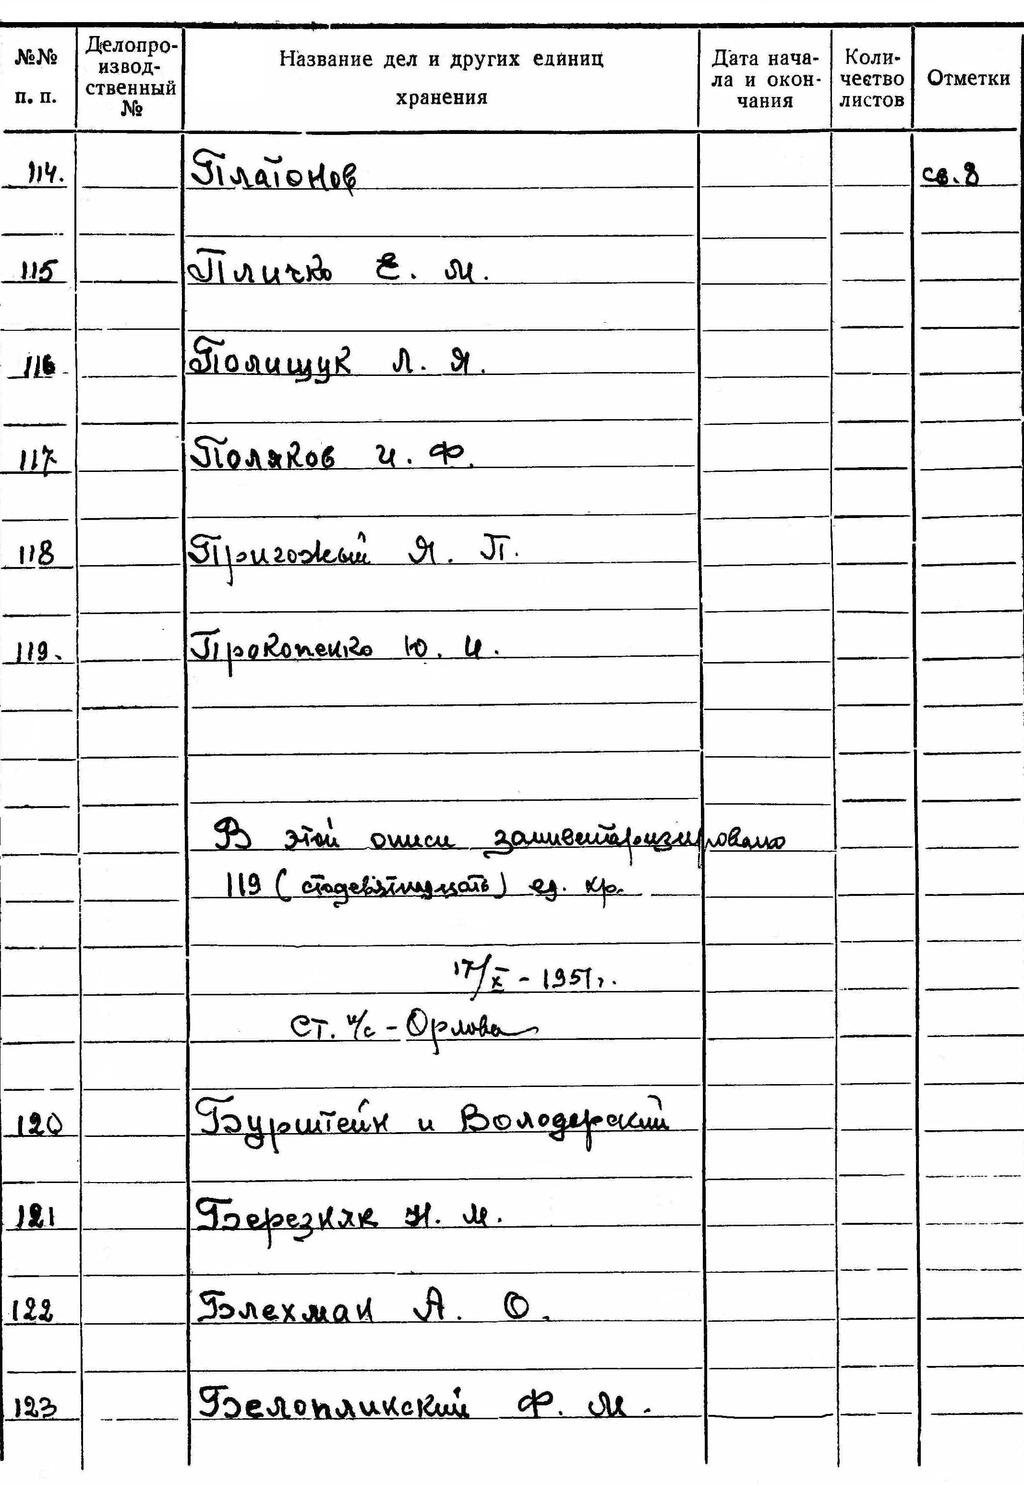 №№ п. п. Делопро-извод-ственный № Название дел и других единиц хранения Дата нача-ла и окон-чания Коли-чество листов Отметки
114. Платонов св. 8
115 Пличко Е. М.
116 Полищук Л. Я.
117 Поляков И. Ф.
118 Пригожый Я. П.
119. Прокопенко Ю. И.
В этой описи заинвентаризировано
119 (стодевятнадцать) ед. хр.
17/X - 1951 г.
Ст. н/с - Орлова
120 Бурштейн и Володерский
121 Березняк Н. М.
122 Блехман А. О.
123 Белоплинский Ф. М.